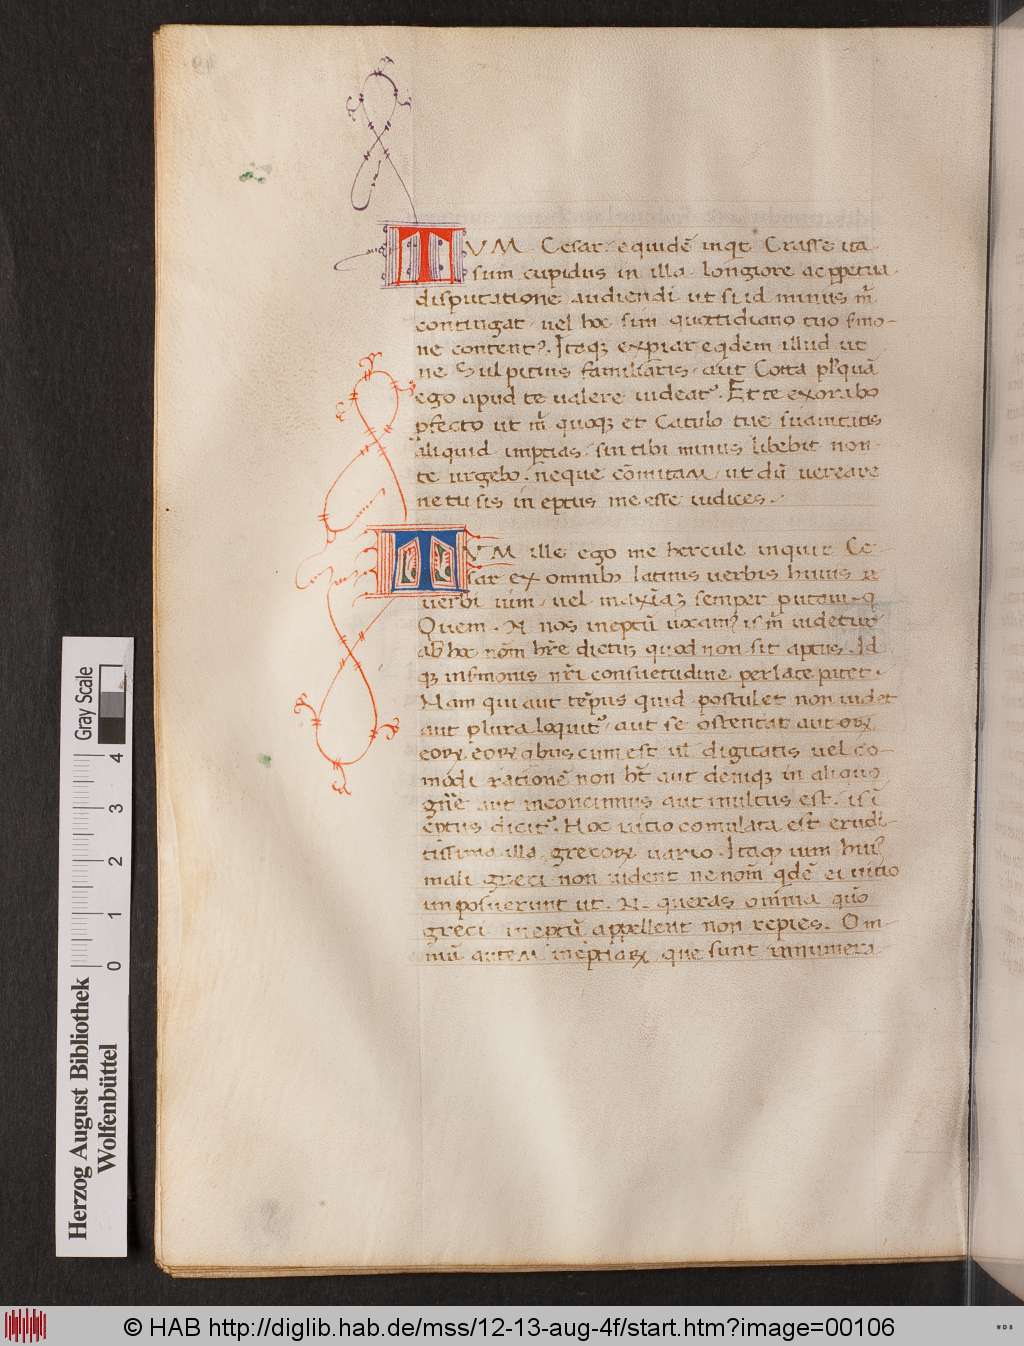 TVM Cesar equidē inqt Crasse ita
sum cupidus in illa longiore ac ppetua
disputatione audiendi ut si id minus m̄
contingat uel hoc sim quottidiano tuo smo-
ne contentꝰ. Itaqꝫ expiar eqdem illud ut
ne Sulpitius familiaris aut Cotta plꝰquā
ego apud te ualere uideatꝰ. Et te exorabo
pfecto ut m̄ quoqꝫ et Catulo tue suauitatis
aliquid imptias. sin tibi minus libebit non
te urgebo. neque cōmitam ut dū uereare
ne tu sis ineptus me esse iudices.
TVM ille ego me hercule inquit Ce-
sar ex omnibꝫ latinis uerbis huius
uerbi uim uel maxīaꝫ semper putaui. q
Quem. N nos ineptū uocamꝰ is m̄ uidetur
ab hoc nōm hr̄e dictuꝫ quod non sit aptus. Id
qꝫ in smonis nr̄i consuetudine perlate patet.
Nam qui aut tēpus quid postulet non uidet
aut plura loquitꝰ aut se ostentat aut oꝝ
eoꝝ qbus cum est ul digitatis uel co-
modi rationē non ht̄ aut deniqꝫ in aliquo
gn̄e aut inconcinnus aut multus est. is ī
eptus dicitꝰ. Hoc uicio comulata est erudi-
tissima illa grecoꝝ natio. Itaqꝫ uim huiꝰ
mali greci non uident ne nom̄ qdē ei uitio
imposuerunt ut. N. queras omnia quō
greci ineptū appellent non repies. Om-
niū autem ineptiaꝝ que sunt innumera
Gray Scale
4
3
2
1
0
Herzog August Bibliothek
Wolfenbüttel
© HAB http://diglib.hab.de/mss/12-13-aug-4f/start.htm?image=00106